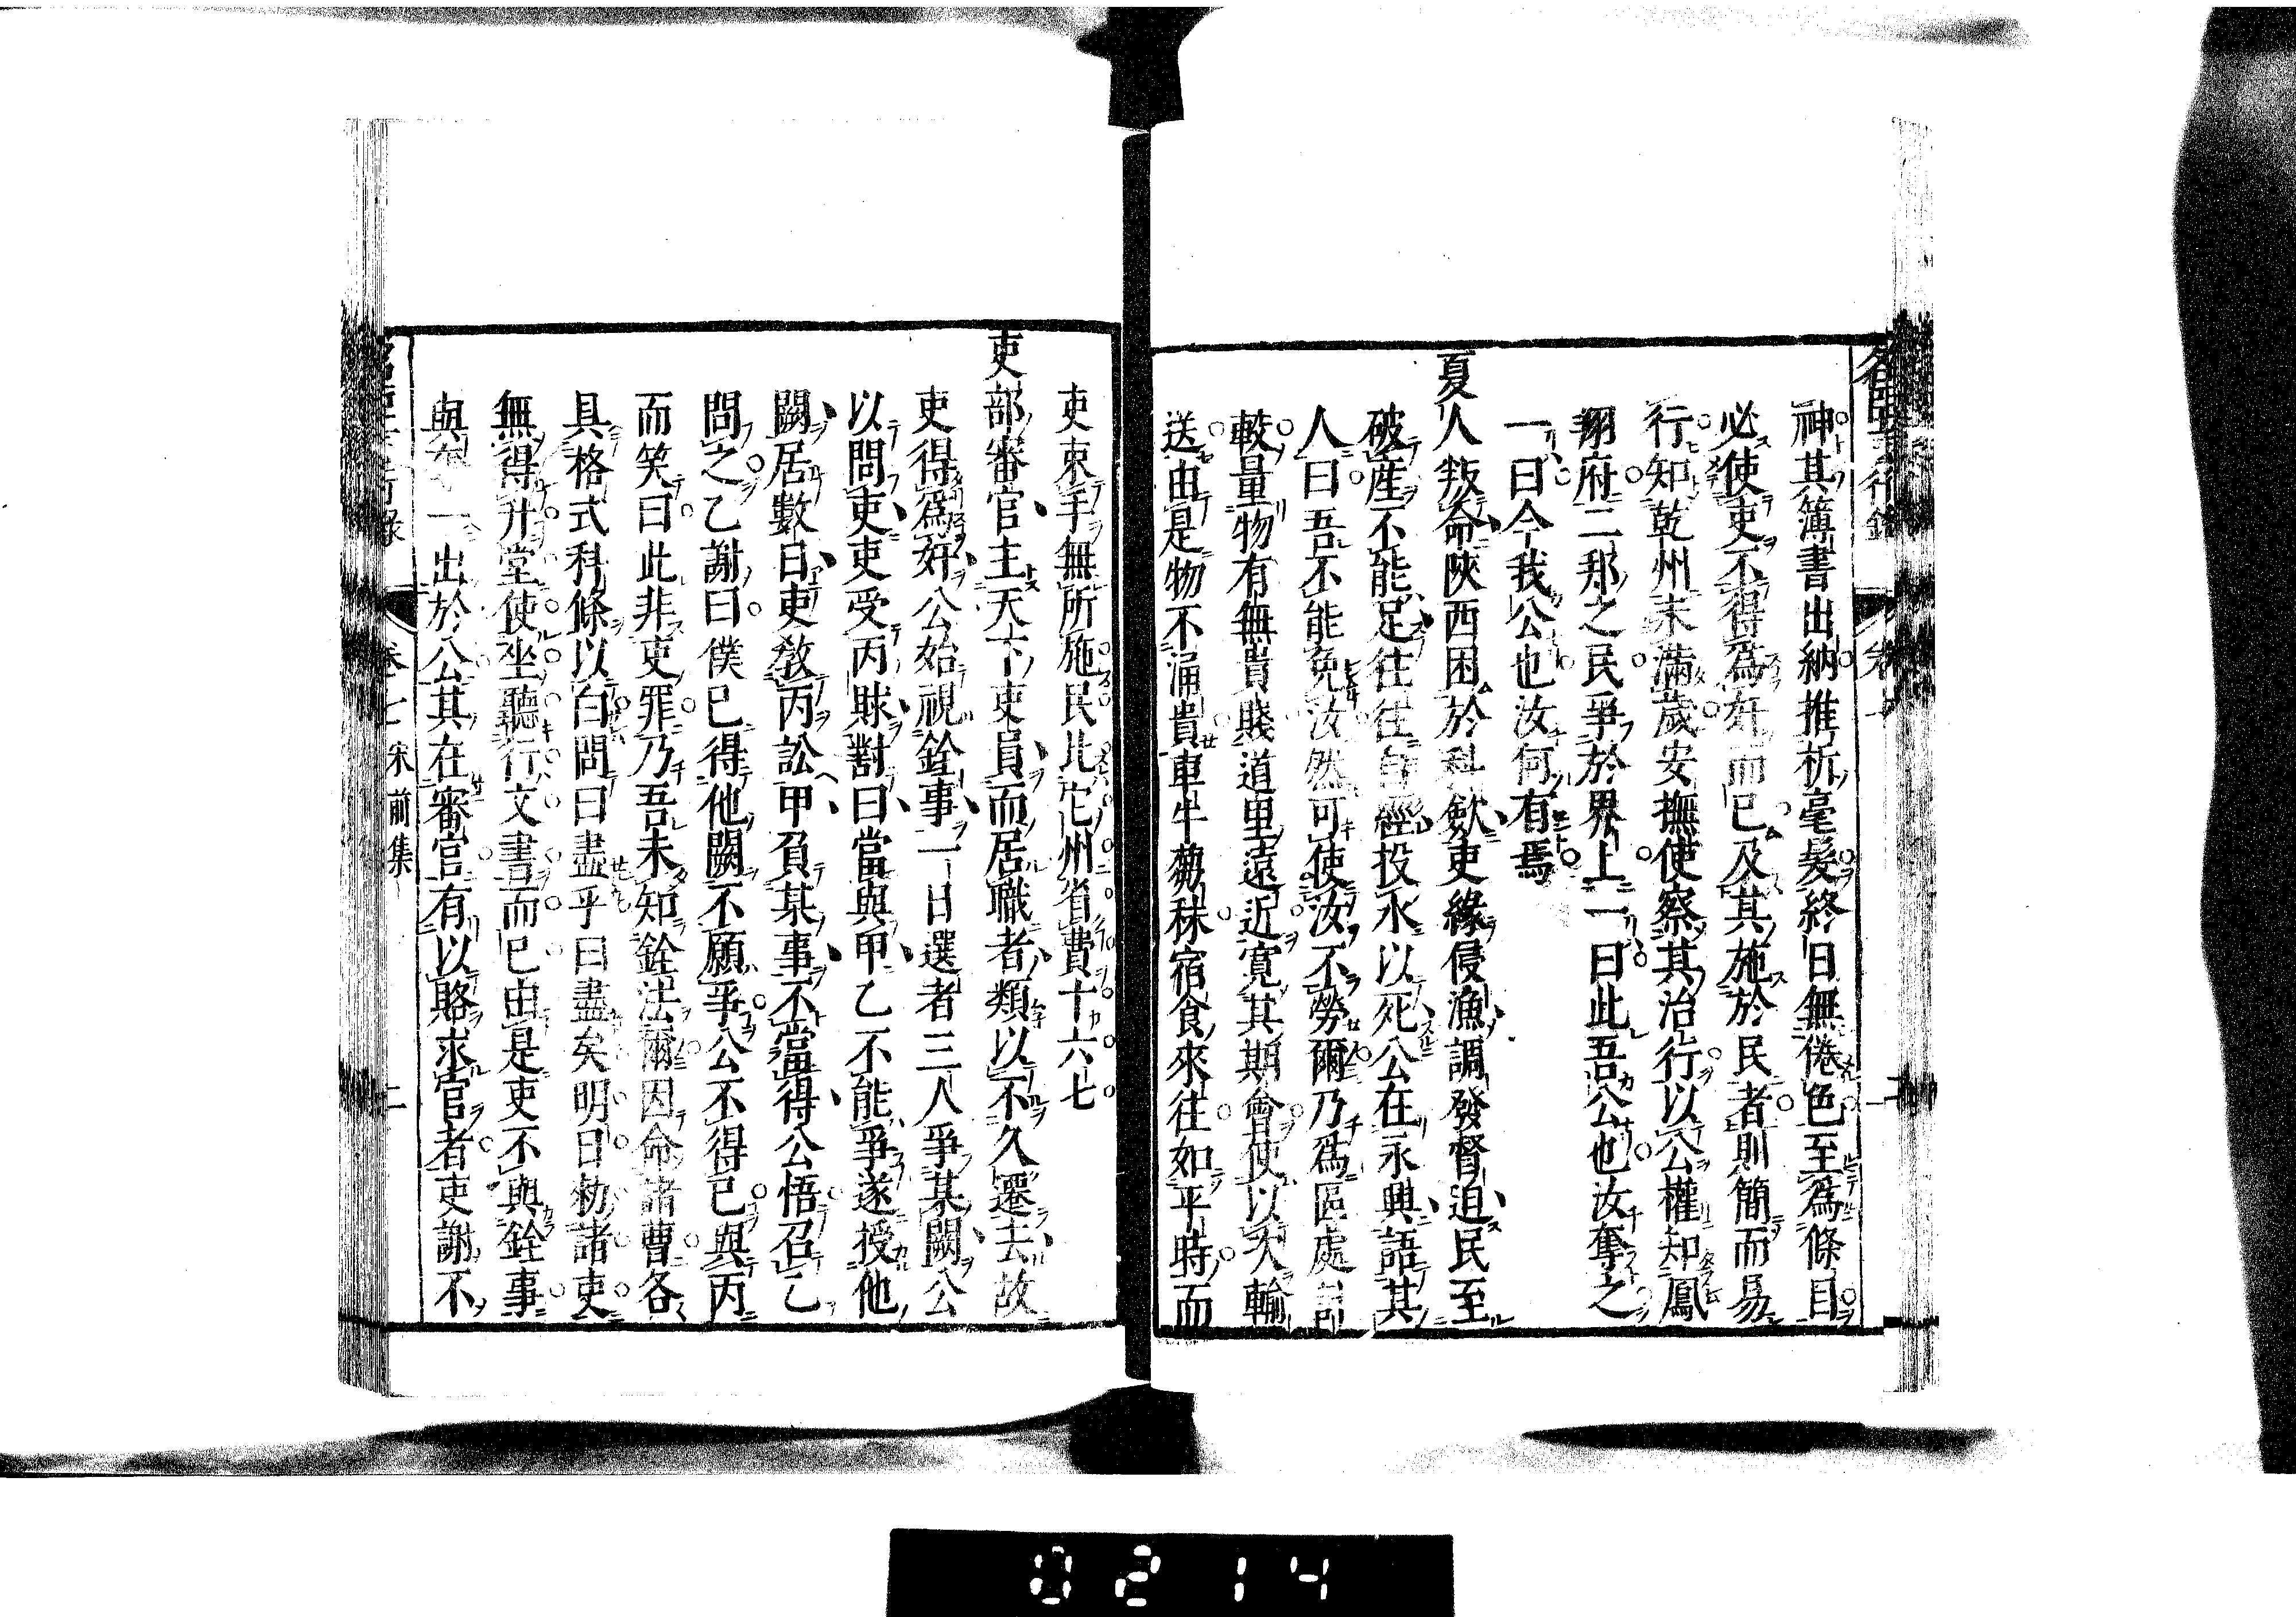 神其簿書出納推析毫髮終日無倦色至為條目
必使吏不得為奸而已及其施於民者則簡而易
行知乾州未滿歲安撫使察其治行以公權知鳳
翔府二郡之民爭於界上一曰此吾公也汝奪之
一曰今我公也汝何有焉
夏人叛命陝西困於科歛吏緣侵漁調發督迫民至
破産不能足往往自經投水以死公在永興語其
人曰吾不能免汝然可使汝不勞爾乃為區處計
較量物有無貴賤道里遠近寛其期會使以次輸
送由是物不涌貴車牛芻秣宿食來往如平時而
吏束手無所施民比它州省費十六七
吏部審官主天下吏員而居職者類以不久遷去故
吏得為奸公始視銓事一日選者三人爭某闕公
以問吏吏受丙賕對曰當與甲乙不能爭遂授他
闕居數日吏敎丙訟甲負某事不當得公悟召乙
問之乙謝曰僕已得他闕不願爭公不得已與丙
而笑曰此非吏罪乃吾未知銓法爾因命諸曹各
具格式科條以白問曰盡乎曰盡矣明日勑諸吏
無得升堂使坐聽行文書而已由是吏不與銓事
與奪一出於公其在審官有以賂求官者吏謝不
卷七 宋前集